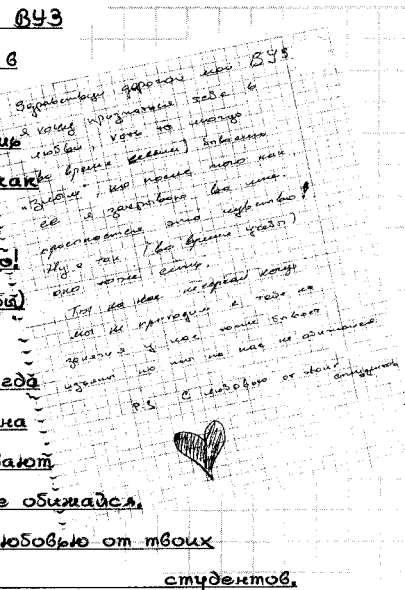 ВУЗ
в
как
о!
на
обижайся,
от твоих
студентов.
Здравствуй дорогой мой ВУЗ
я хочу признаться тебе в
любви, хоть ты иногда
(во время сессии) бываешь
но после того как
её я закрываю во мне
просыпается это чувство!
Ну а так (во время учёбы)
оно тоже есть.
Ты на нас когда
мы не приходим к тебе на
занятия у нас тоже
но ты на нас не обижайся
P.S С любовью от твоих
студентов